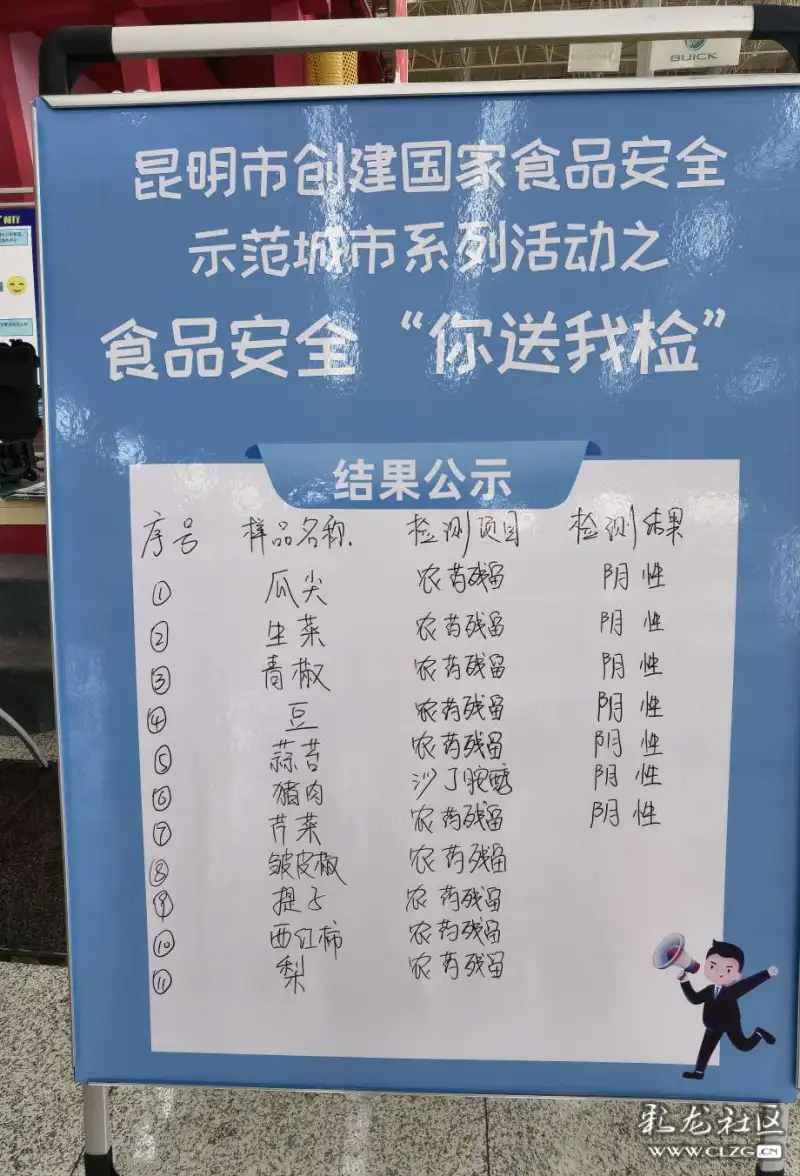 BUICK
昆明市创建国家食品安全
示范城市系列活动之
食品安全“你送我检”
结果公示
序号 样品名称. 检测项目 检测结果
① 瓜尖 农药残留 阴性
② 生菜 农药残留 阴性
③ 青椒 农药残留 阴性
④ 豆 农药残留 阴性
⑤ 蒜苔 农药残留 阴性
⑥ 猪肉 沙丁胺醇 阴性
⑦ 芹菜 农药残留 阴性
⑧ 皱皮椒 农药残留
⑨ 提子 农药残留
⑩ 西红柿 农药残留
⑪ 梨 农药残留
彩龙社区
WWW.CLZG.CN